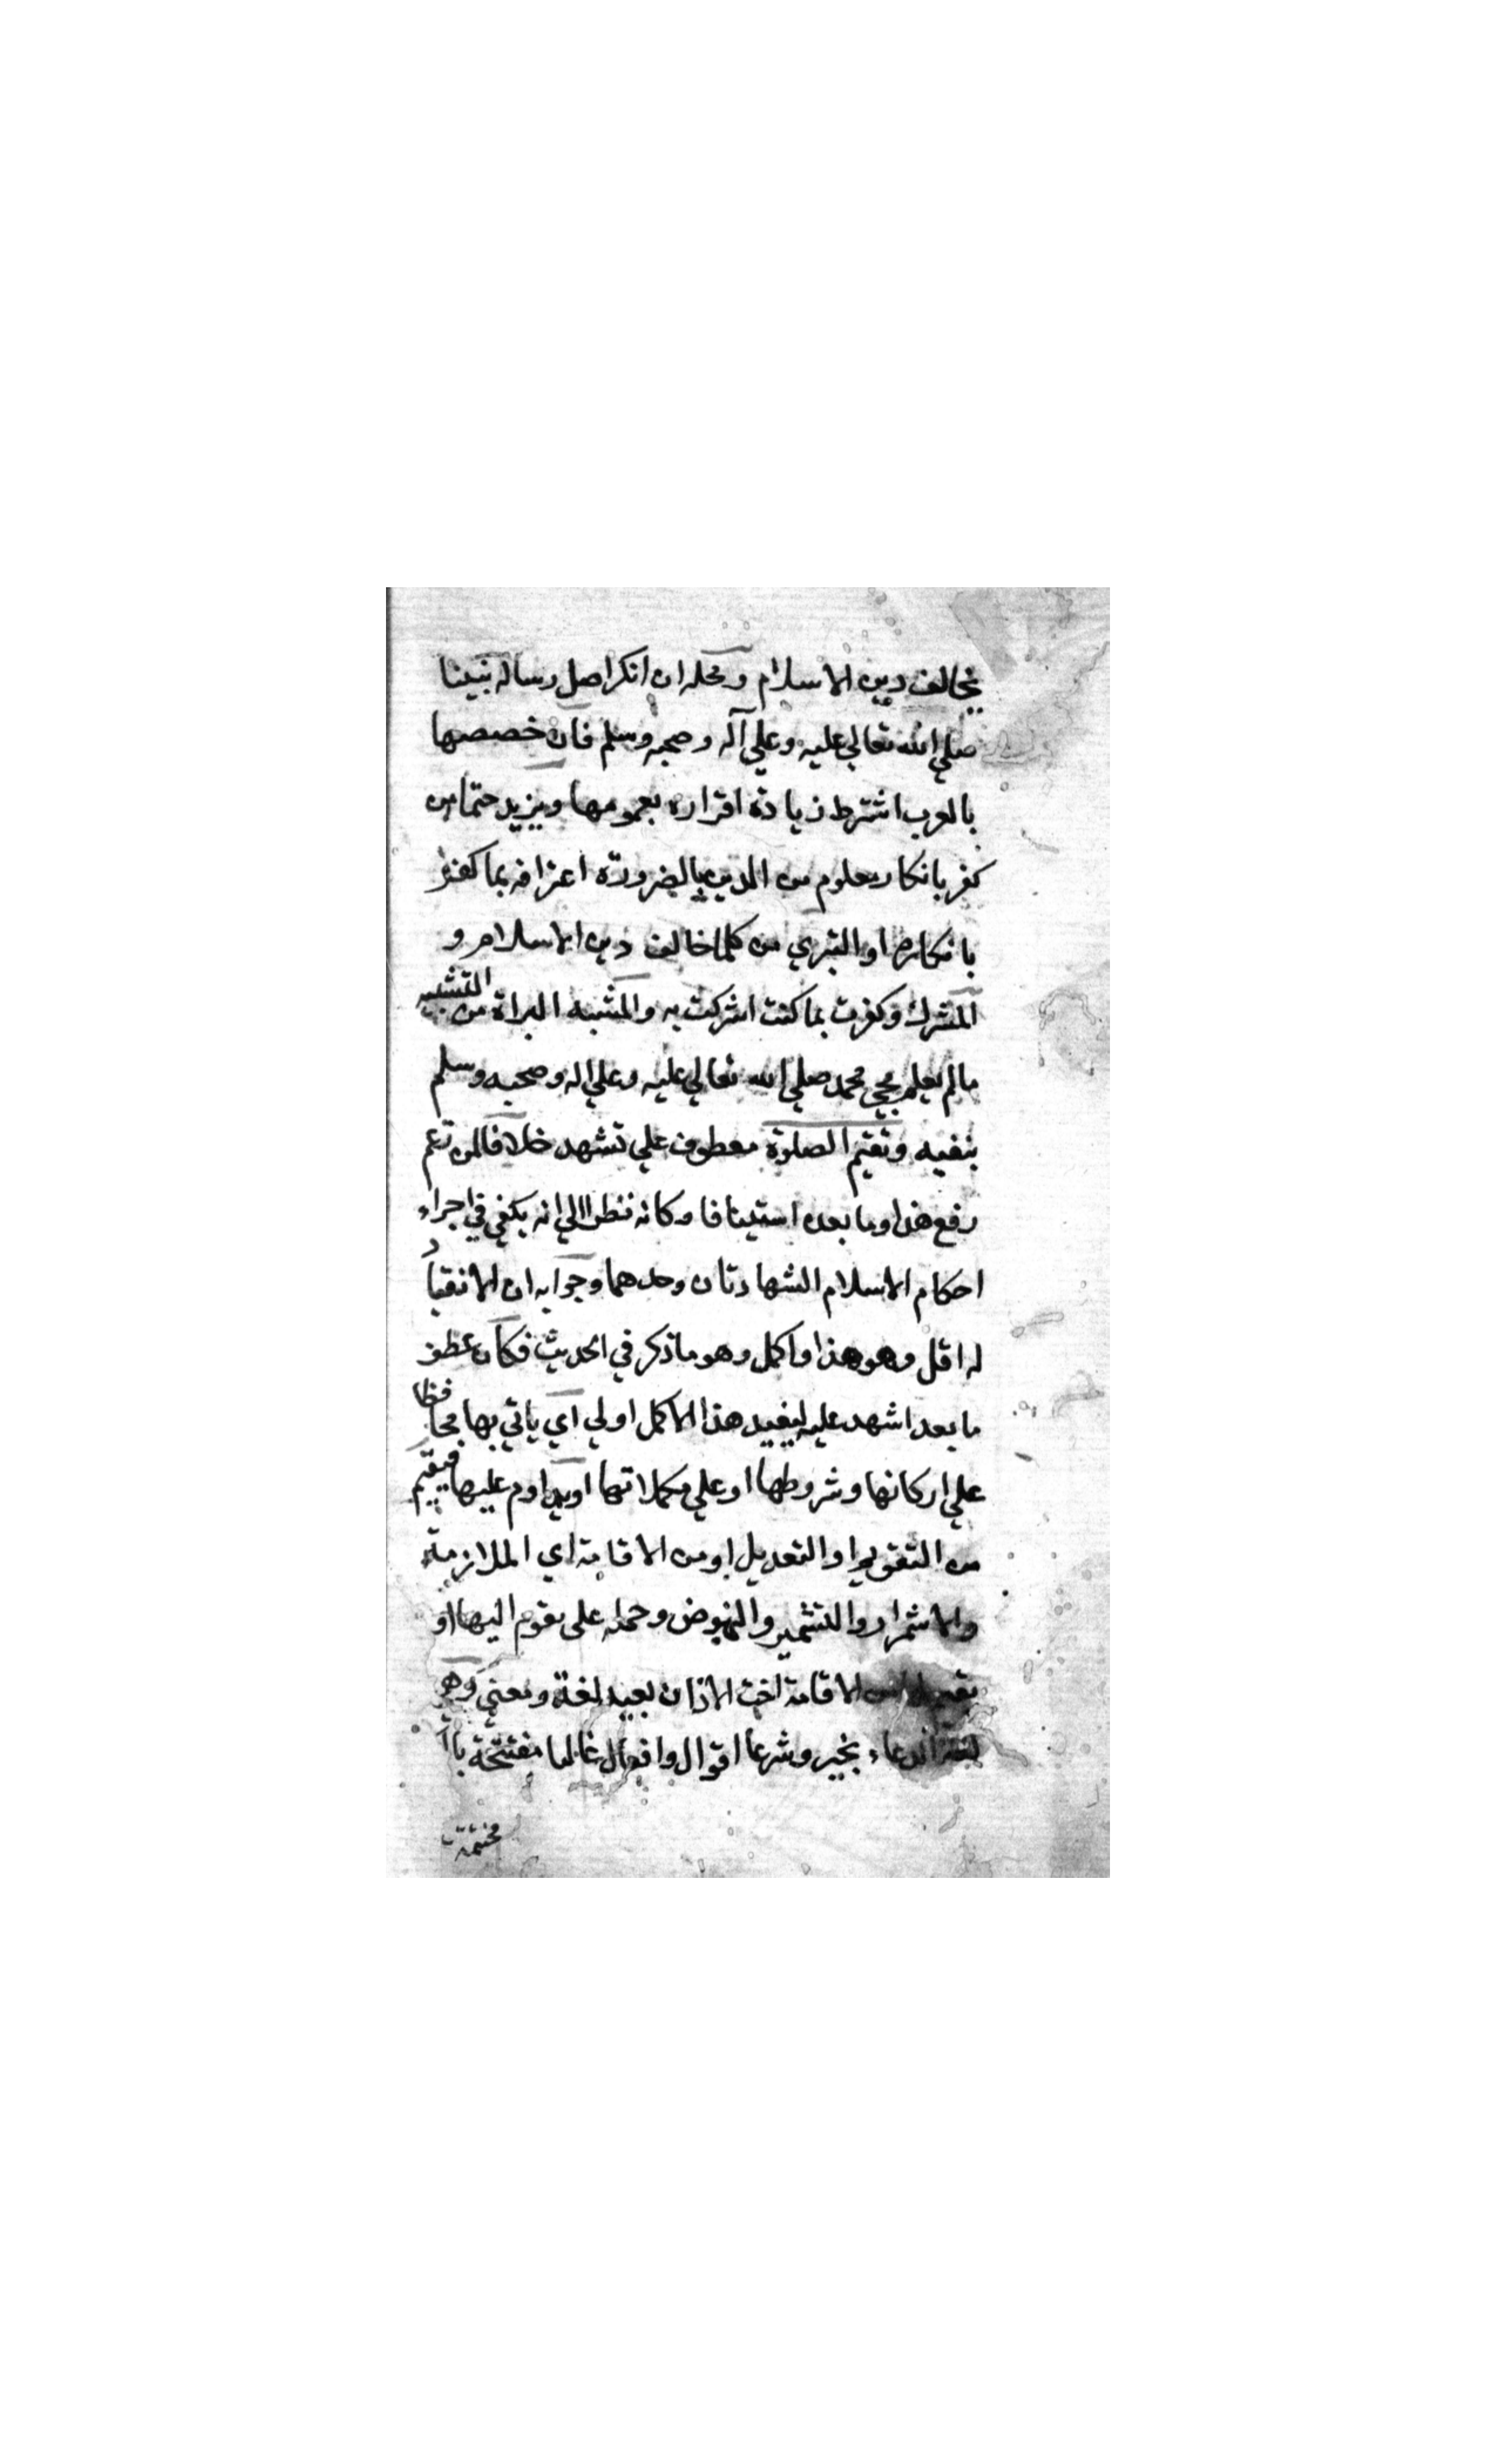 يخالف دين الاسلام ومحله ان انكر اصل رسالة نبينا
صلي الله تعالي عليه وعلي آله وصحبه وسلم فان خصصها
بالعرب اشترط زيادة اقراره بعمومها ويزيد حتما من
كفر بانكار معلوم من الدين بالضرورة اعترافه بما كفر
بانكاره او التبري من كلما خالف دين الاسلام و
المشرك وكفرت بما كنت اشركت به والمشبه البراة من التشبيه
مالم يعلم مجي محمد صلي الله تعالي عليه وعلي اله وصحبه وسلم
بنفيه وتقيم الصلوة معطوف علي تشهد خلافا لمن زعم
رفع هذا وما بعده استينافا وكانه نظر الي انه يكفي في اجراء
احكام الاسلام الشهادتان وحدهما وجوابه ان الانقياد
له اقل وهو هذا واكمل وهو ما ذكر في الحديث فكان عطف
ما بعد اشهد عليه ليفيد هذا الاكمل اولي اي ياتي بها محافظا
علي اركانها وشروطها او علي مكملاتها او يداوم عليها فيقيم
من التقويم او التعديل او من الاقامة اي الملازمة
والاشمرار والتشمير والنهوض وحمله علي يقوم اليها او
الاقامة اخت الاذان بعيد لغة ومعني وهي
لغة الدعاء بخير وشرعا اقوال وافعال غالبا مفتتحة با
مختتمة